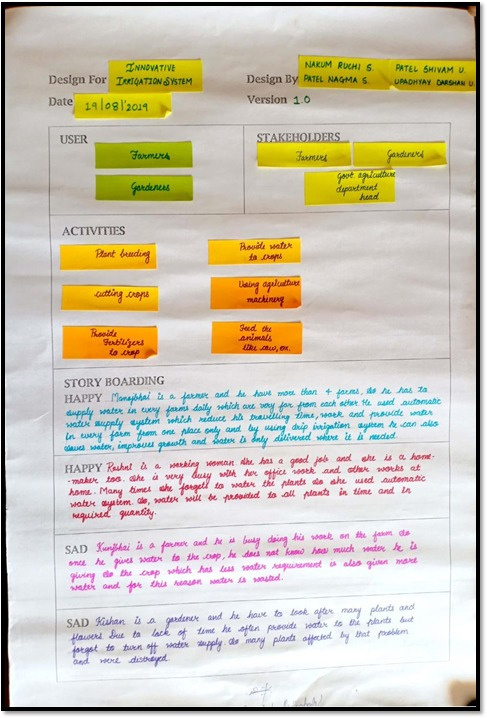 Design For INNOVATIVE IRRIGATION SYSTEM
Design By NAKUM RUCHI S. PATEL SHIVAM U.
PATEL NAGMA S. UPADHYAY DARSHAN U.
Date 19/08/2019
Version 1.0
USER
Farmers
Gardeners
STAKEHOLDERS
Farmers
Gardeners
Govt. agriculture
department
head
ACTIVITIES
Plant breeding
Provide water
to crops
cutting crops
Using agriculture
machinery
Provide
Fertilizers
to crop
Feed the
animals
like cow, ox.
STORY BOARDING
HAPPY Manojbhai is a farmer and he have more than 4 farms, so he has to
supply water in every farms daily which are very far from each other. He used automatic
water supply system which reduce his travelling time, work and provide water
in every farm from one place only and by using drip irrigation system he can also
saves water, improves growth and water is only delivered where it is needed.
HAPPY Roshni is a working woman. She has a good job and she is a home-
-maker too. She is very busy with her office work and other works at
home. Many times she forgets to water the plants so she used automatic
water system. So, water will be provided to all plants in time and in
required quantity.
SAD Kunjbhai is a farmer and he is busy doing his work on the farm so
once he gives water to the crop, he does not know how much water he is
giving so the crop which has less water requirement is also given more
water and for this reason water is wasted.
SAD Kishan is a gardener and he have to look after many plants and
flowers. Due to lack of time he often provide water to the plants but
forgot to turn off water supply. So many plants affected by that problem
and were destroyed.